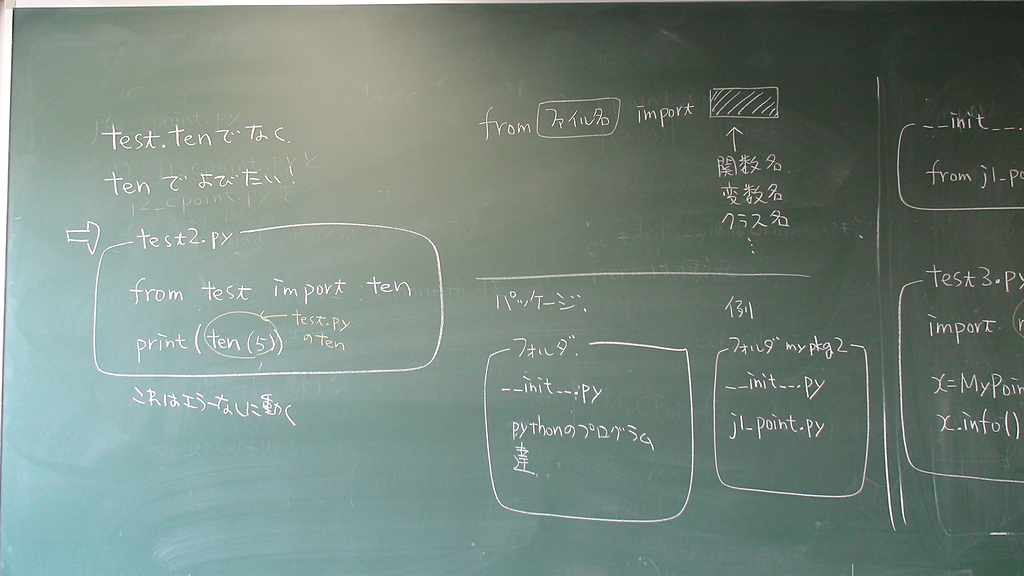 test.tenでなく
tenでよびたい!
test2.py
from test import ten
print(ten(5))
test.py
のten
これはエラーなしに動く
from ファイル名 import
関数名
変数名
クラス名
パッケージ:
フォルダ:
__init__.py
pythonのプログラム
達
例
フォルダ mypkg2
__init__.py
j1_point.py
__init__.
from j1_po
test3.py
import
x=MyPoin
x.info()